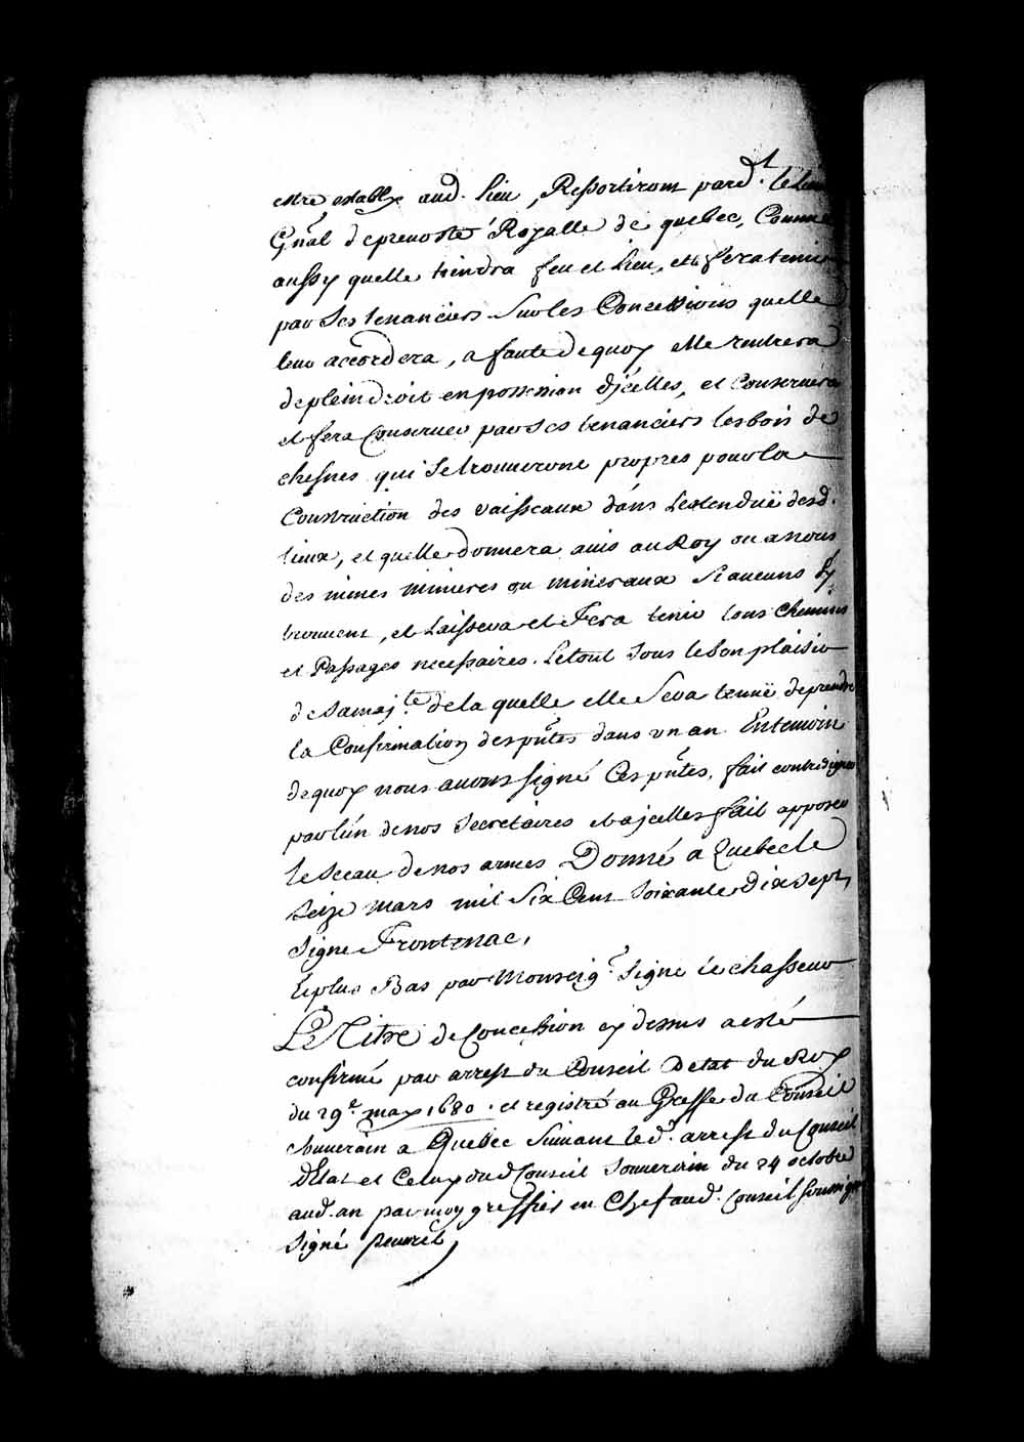 estre estably aud. lieu, Ressortiront pard.t le Lieu
Gnal de prevosté Royalle de quebec, Comme
aussy quelle tiendra feu et lieu, et fera tenir
par Ses tenanciers Sur les Concessions quelle
leur accordera, a faute de quoy elle rentrera
de plein droit en possession d'jcelles, et Conservera
et fera Conserver par Ses tenanciers les bois de
chesnes qui Se trouveront propres pour la
Construction des vaisseaux dans Lestenduë desd.
lieux, et quelle donnera avis au Roy ou a nous
des mines minieres ou mineraux Si aucuns Sy
trouvent, et Laissera et Fera tenir tous Chemins
et Passages necessaires. Le tout Sous le bon plaisir
de Samaj.té de la quelle elle Sera tenuë de prendre
la Confirmation des pntes dans un an. En temoin
de quoy nous avons signé Ces pntes, fait contresigner
par l'un de nos Secretaires et a jcelles fait apposer
le Sceau de nos armes Donné a Quebec le
Seize mars mil Six Cent Soixante Dix Sept,
Signé Frontenac,
Et plus Bas par Monseig.r Signé le chasseur
Le Titre de Concession cy dessus a esté
confirmé par arrest du Conseil Detat du Roy
du 29.e may 1680. et registré au Greffe du Conseil
Souverain a Quebec Suivant le d. arrest du Conseil
dEtat et Celuy dud Conseil Souverain du 24 octobre
aud. an par moy greffier en Chef aud. Conseil Soussigné
Signé peuvret,